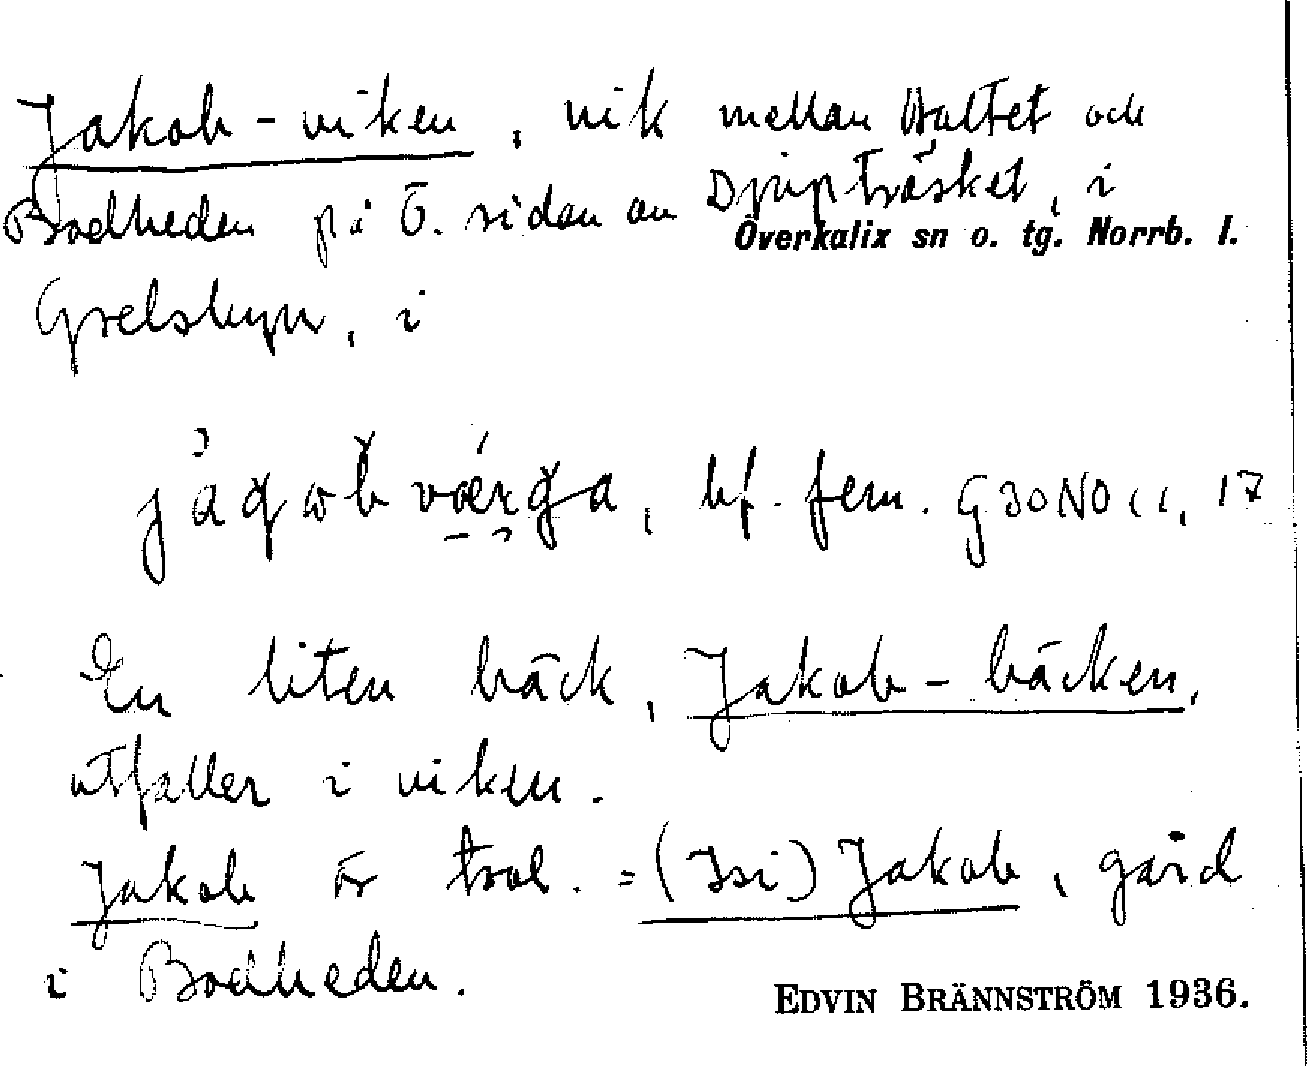 Jakob-viken, vik mellan Haltet och
Bodheden på Ö. sidan av Djupträsket, i
Överkalix sn o. tg. Norrb. l.
Grelsbyn, i
bf. fem. G30NO11, 17
En liten bäck, Jakob-bäcken,
utfaller i viken.
Jakob är trol. = (Isi) Jakob, gård
i Bodheden.
EDVIN BRÄNNSTRÖM 1936.